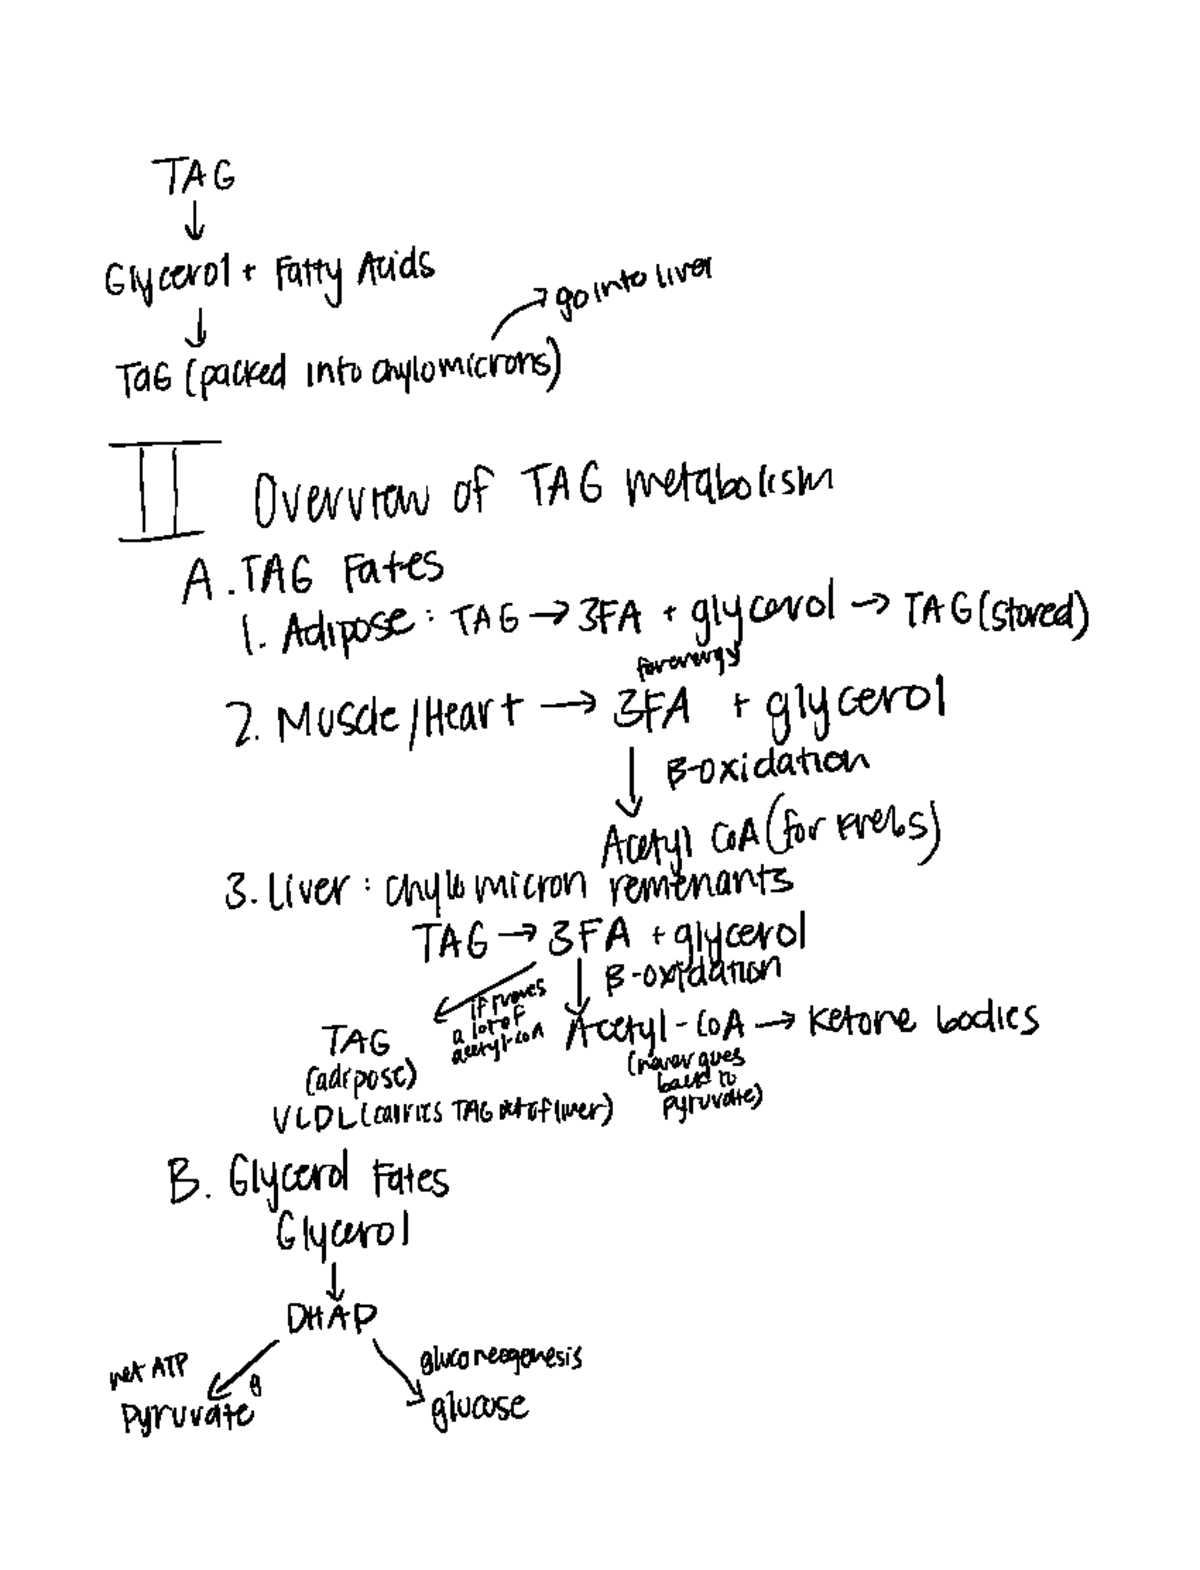 TAG
↓
Glycerol + Fatty Acids
↓ → go into liver
TaG (packed into chylomicrons)
II Overview of TAG metabolism
A. TAG Fates
1. Adipose: TAG → 3FA + glycerol → TAG (stored)
for energy
2. Muscle/Heart → 3FA + glycerol
↓ β-oxidation
Acetyl CoA (for Krebs)
3. Liver: chylomicron remenants
TAG → 3FA + glycerol
↓ β-oxidation
if proves
a lot of
acetyl-coA
Acetyl-CoA → Ketone bodies
(never goes
back to
pyruvate)
TAG
(adipose)
VLDL (carries TAG out of liver)
B. Glycerol Fates
Glycerol
↓
DHAP
net ATP
gluconeogenesis
Pyruvate
glucose